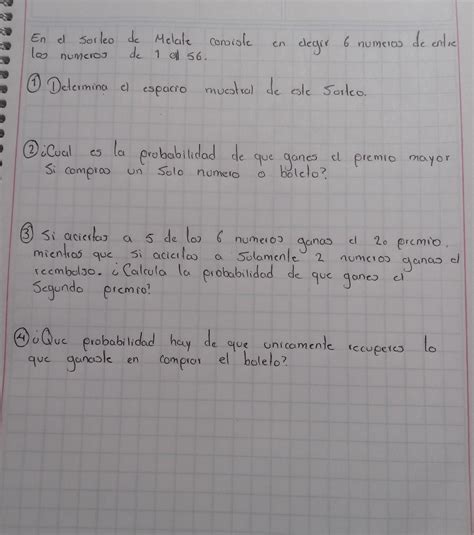 En el sorteo de Melate consiste en elegir 6 numeros de entre
los numeros de 1 al 56.
① Determina el espacio muestral de este Sorteo.
② ¿Cual es la probabilidad de que ganes el premio mayor
Si compras un solo numero o boleto?
③ Si aciertas a 5 de los 6 numeros ganas el 2o premio,
mientras que si aciertas a Solamente 2 numeros ganas el
reembolso. ¿Calcula la probabilidad de que ganes el
Segundo premio?
④ ¿Que probabilidad hay de que unicamente recuperes lo
que ganaste en comprar el boleto?